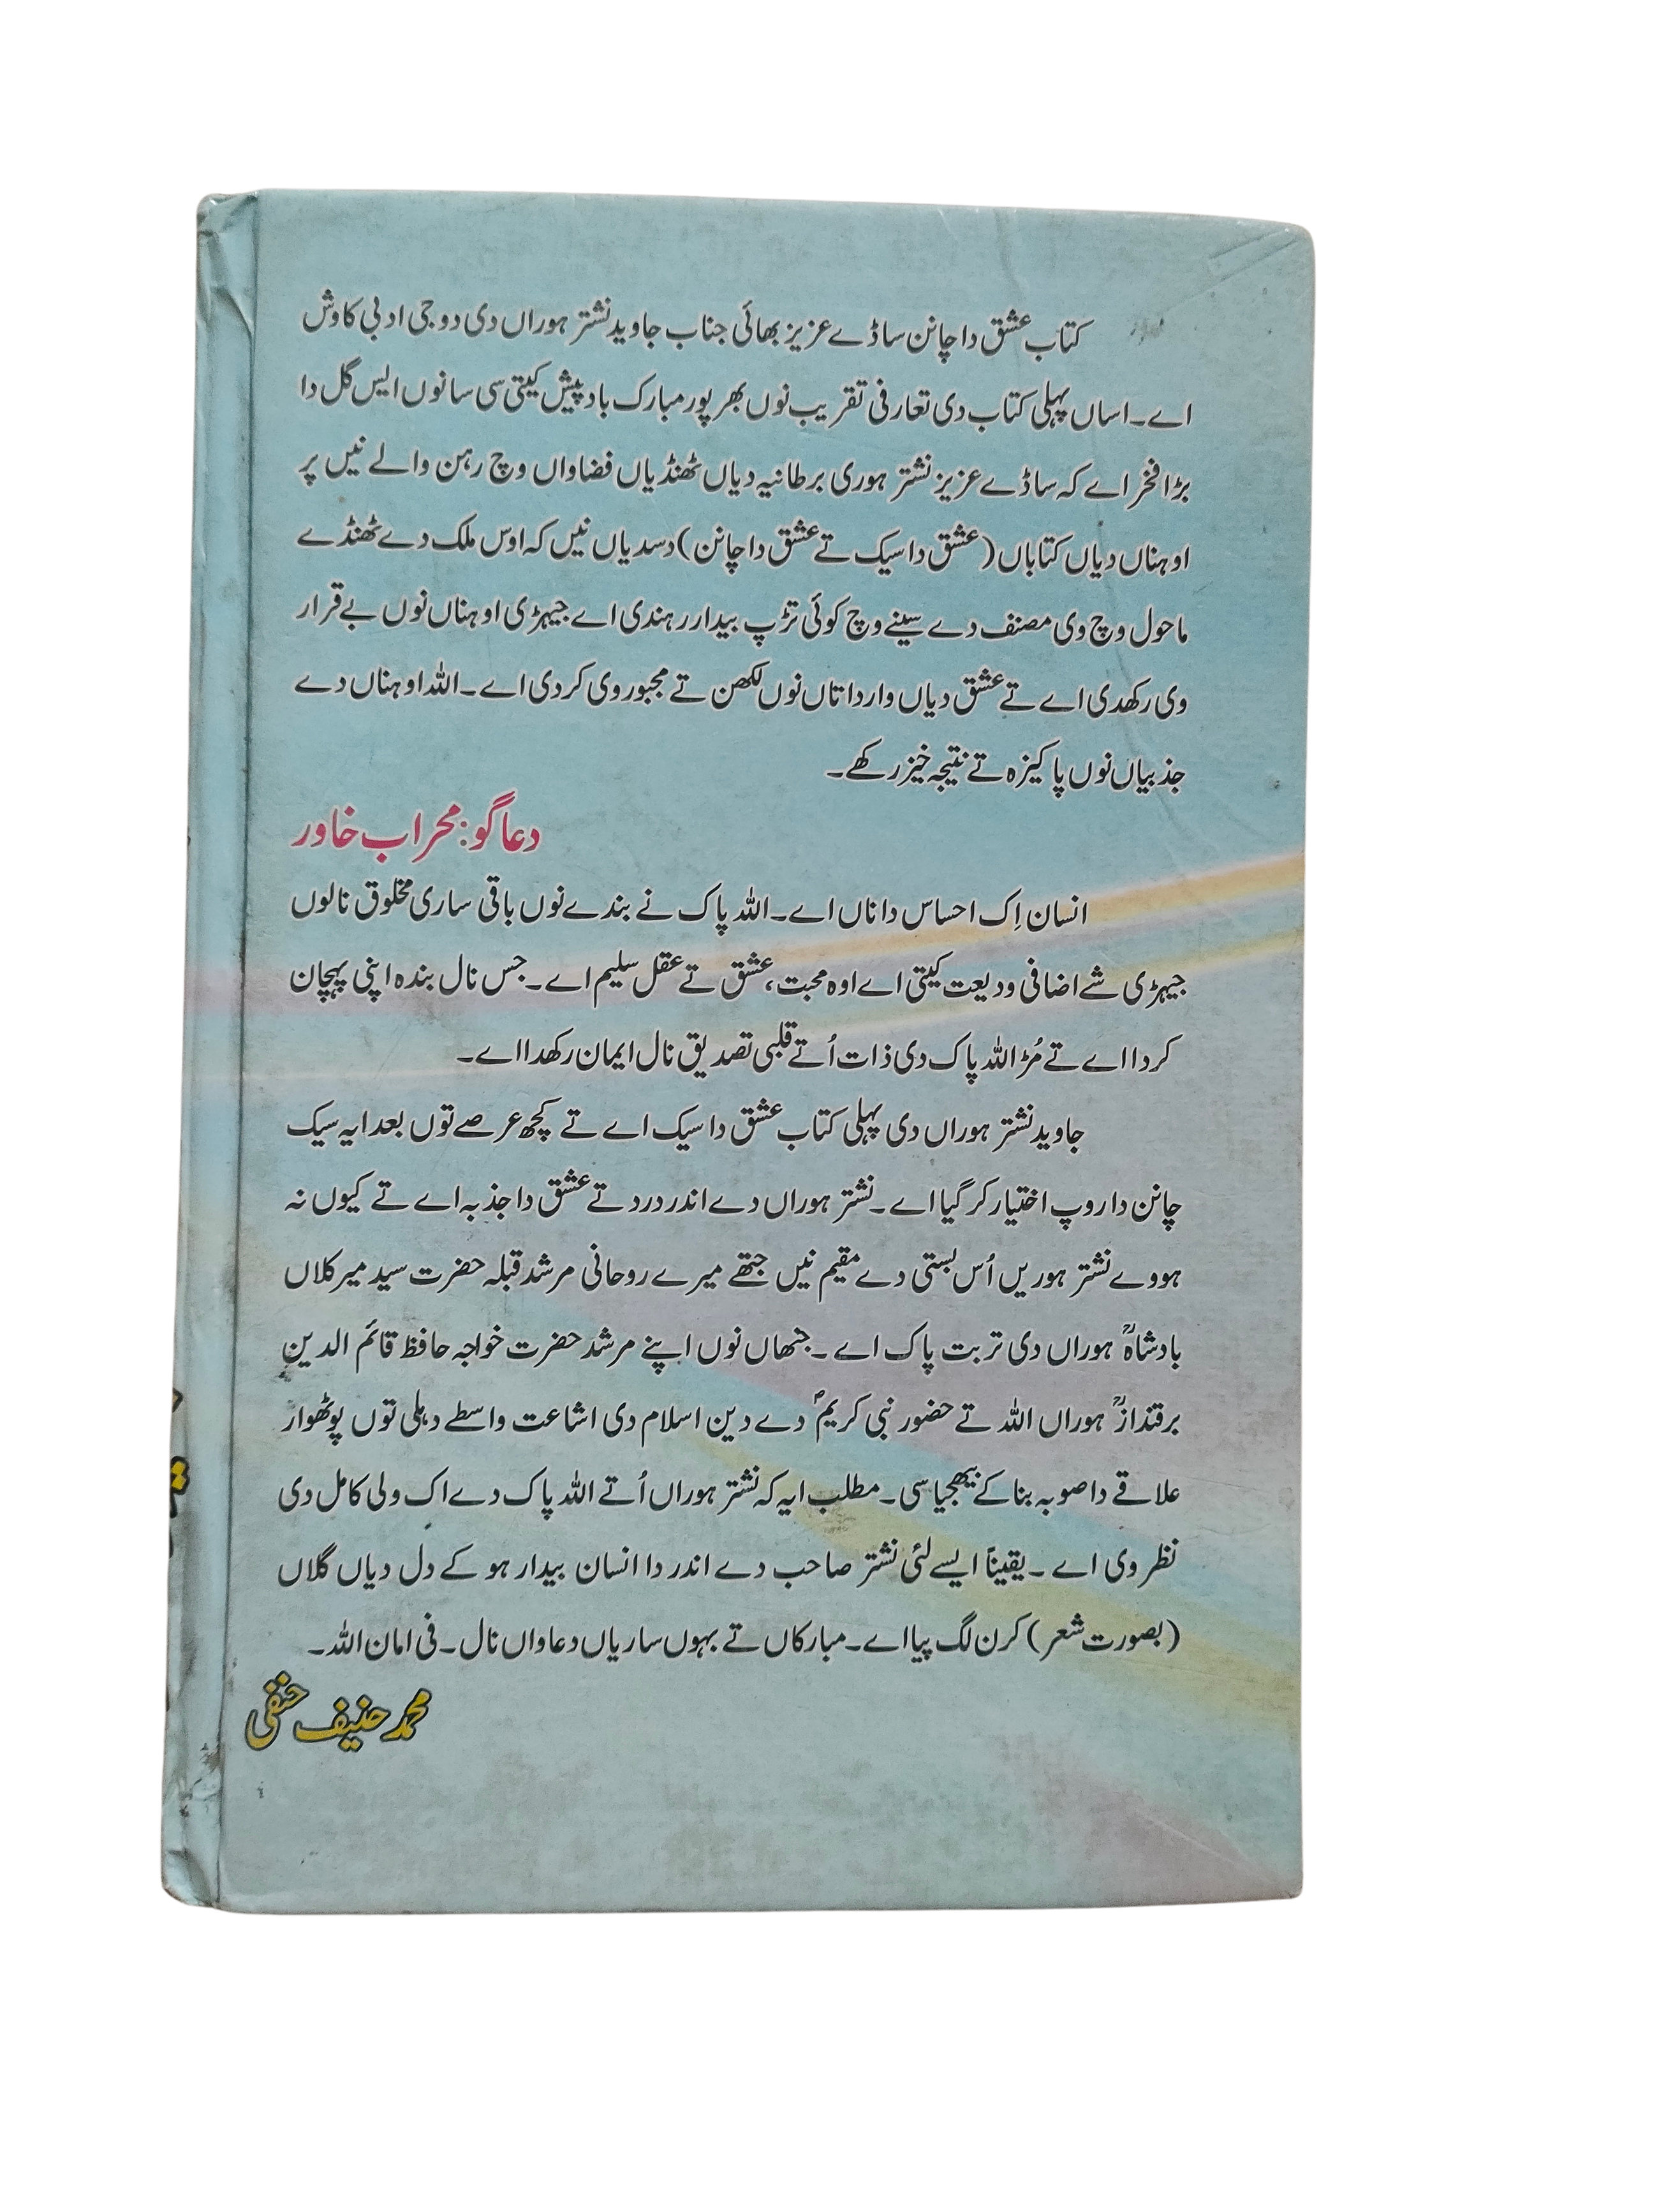 کتاب عشق دا چانن ساڈے عزیز بھائی جناب جاوید نشتر ہوراں دی دوجی ادبی کاوش
اے۔ اساں پہلی کتاب دی تعارفی تقریب نوں بھرپور مبارک باد پیش کیتی سی سانوں ایس گل دا
بڑا فخر اے کہ ساڈے عزیز نشتر ہوری برطانیہ دیاں ٹھنڈیاں فضاواں وچ رہن والے نیں پر
اوہناں دیاں کتاباں (عشق دا سیک تے عشق دا چانن) دسدیاں نیں کہ اوس ملک دے ٹھنڈے
ماحول وچ وی مصنف دے سینے وچ کوئی تڑپ بیدار رہندی اے جیہڑی اوہناں نوں بے قرار
وی رکھدی اے تے عشق دیاں وارداتاں نوں لکھن تے مجبور وی کردی اے۔ اللہ اوہناں دے
جذبیاں نوں پاکیزہ تے نتیجہ خیز رکھے۔
دعا گو: محراب خاور
انسان اِک احساس دا ناں اے۔ اللہ پاک نے بندے نوں باقی ساری مخلوق نالوں
جیہڑی شے اضافی ودیعت کیتی اے اوہ محبت، عشق تے عقل سلیم اے۔ جس نال بندہ اپنی پہچان
کردا اے تے مُڑ اللہ پاک دی ذات اُتے قلبی تصدیق نال ایمان رکھدا اے۔
جاوید نشتر ہوراں دی پہلی کتاب عشق دا سیک اے تے کچھ عرصے توں بعد ایہ سیک
چانن دا روپ اختیار کر گیا اے۔ نشتر ہوراں دے اندر درد تے عشق دا جذبہ اے تے کیوں نہ
ہووے نشتر ہوریں اُس بستی دے مقیم نیں جتھے میرے روحانی مرشد قبلہ حضرت سید میر کلاں
بادشاہؒ ہوراں دی تربت پاک اے۔ جنھاں نوں اپنے مرشد حضرت خواجہ حافظ قائم الدین
برقندازؒ ہوراں اللہ تے حضور نبی کریمؐ دے دین اسلام دی اشاعت واسطے دہلی توں پوٹھوار
علاقے دا صوبہ بنا کے بھیجیا سی۔ مطلب ایہ کہ نشتر ہوراں اُتے اللہ پاک دے اک ولی کامل دی
نظر وی اے ۔ یقیناً ایسے لئی نشتر صاحب دے اندر دا انسان بیدار ہو کے دل دیاں گلاں
(بصورت شعر) کرن لگ پیا اے۔ مبارکاں تے بہوں ساریاں دعاواں نال۔ فی امان اللہ۔
محمد حنیف حنفی